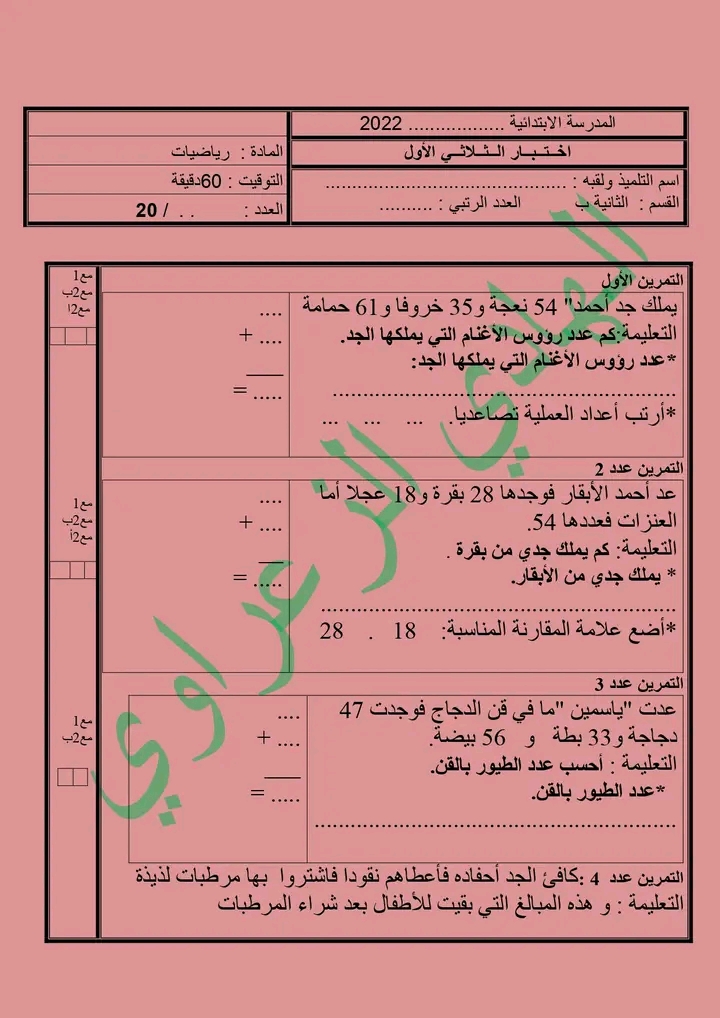 المدرسة الابتدائية .................. 2022
اختبار الثلاثي الأول
المادة : رياضيات
اسم التلميذ ولقبه : ........................................
التوقيت : 60دقيقة
القسم : الثانية ب العدد الرتبي : ..........
العدد : . . / 20
التمرين الأول
يملك جد أحمد" 54 نعجة و35 خروفا و61 حمامة
التعليمة:كم عدد رؤوس الأغنام التي يملكها الجد.
*عدد رؤوس الأغنام التي يملكها الجد:
............................................................
*أرتب أعداد العملية تصاعديا. ... ... ...
....
+ ....
___
= .....
مع1
مع2ب
مع2ا
التمرين عدد 2
عد أحمد الأبقار فوجدها 28 بقرة و18 عجلا أما
العنزات فعددها 54.
التعليمة: كم يملك جدي من بقرة .
* يملك جدي من الأبقار.
............................................................
*أضع علامة المقارنة المناسبة: 18 . 28
....
+ ....
__
= .....
مع1
مع2ب
مع2أ
التمرين عدد 3
عدت "ياسمين "ما في قن الدجاج فوجدت 47
دجاجة و33 بطة و 56 بيضة.
التعليمة : أحسب عدد الطيور بالقن.
*عدد الطيور بالقن.
............................................................
....
+ ....
___
= .....
مع1
مع2ب
التمرين عدد 4 :كافئ الجد أحفاده فأعطاهم نقودا فاشتروا بها مرطبات لذيذة
التعليمة : و هذه المبالغ التي بقيت للأطفال بعد شراء المرطبات
الهادي الزعراوي